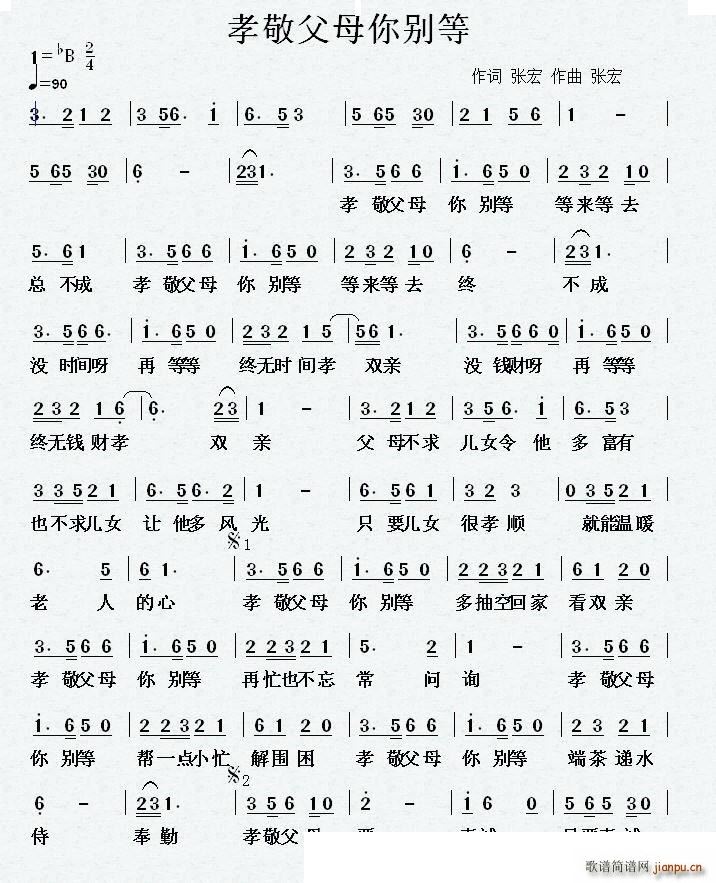 孝敬父母你别等
1=bB 2/4
♩=90
作词 张宏 作曲 张宏
3. 2 1 2 | 3 5 6. i | 6. 5 3 | 5 6 5 3 0 | 2 1 5 6 | 1 - |
5 6 5 3 0 | 6 - | 2 3 1. | 3. 5 6 6 | i. 6 5 0 | 2 3 2 1 0 |
孝 敬父母 你 别等 等来等去
5. 6 1 | 3. 5 6 6 | i. 6 5 0 | 2 3 2 1 0 | 6 - | 2 3 1. |
总 不成 孝 敬父母 你 别等 等来等去 终 不成
3. 5 6 6. | i. 6 5 0 | 2 3 2 1 5 | 5 6 1. | 3. 5 6 6 0 | i. 6 5 0 |
没 时间呀 再 等等 终无时间孝 双亲 没 钱财呀 再 等等
2 3 2 1 6 | 6. 2 3 | 1 - | 3. 2 1 2 | 3 5 6. i | 6. 5 3 |
终无钱财孝 双 亲 父 母不求 儿女令 他 多 富有
3 3 5 2 1 | 6. 5 6. 2 | 1 - | 3. 5 6 1 | 3 2 3 | 0 3 5 2 1 |
也不求儿女 让 他多 风 光 只 要儿女 很孝顺 就能温暖
𝄋1
6. 5 | 6 1. | 3. 5 6 6 | i. 6 5 0 | 2 2 3 2 1 | 6 1 2 0 |
老 人 的心 孝 敬父母 你 别等 多抽空回家 看双亲
3. 5 6 6 | i. 6 5 0 | 2 2 3 2 1 | 5. 2 | 1 - | 3. 5 6 6 |
孝 敬父母 你 别等 再忙也不忘 常 问 询 孝 敬父母
i. 6 5 0 | 2 2 3 2 1 | 6 1 2 0 | 3. 5 6 6 | i. 6 5 0 | 2 3 2 1 |
你 别等 帮一点小忙 解围困 孝 敬父母 你 别等 端茶递水
𝄋2
6 - | 2 3 1. | 3 5 6 1 0 | 2 - | i 6 0 | 5 6 5 3 0 |
侍 奉勤 孝敬父
歌谱简谱网
jianpu.cn